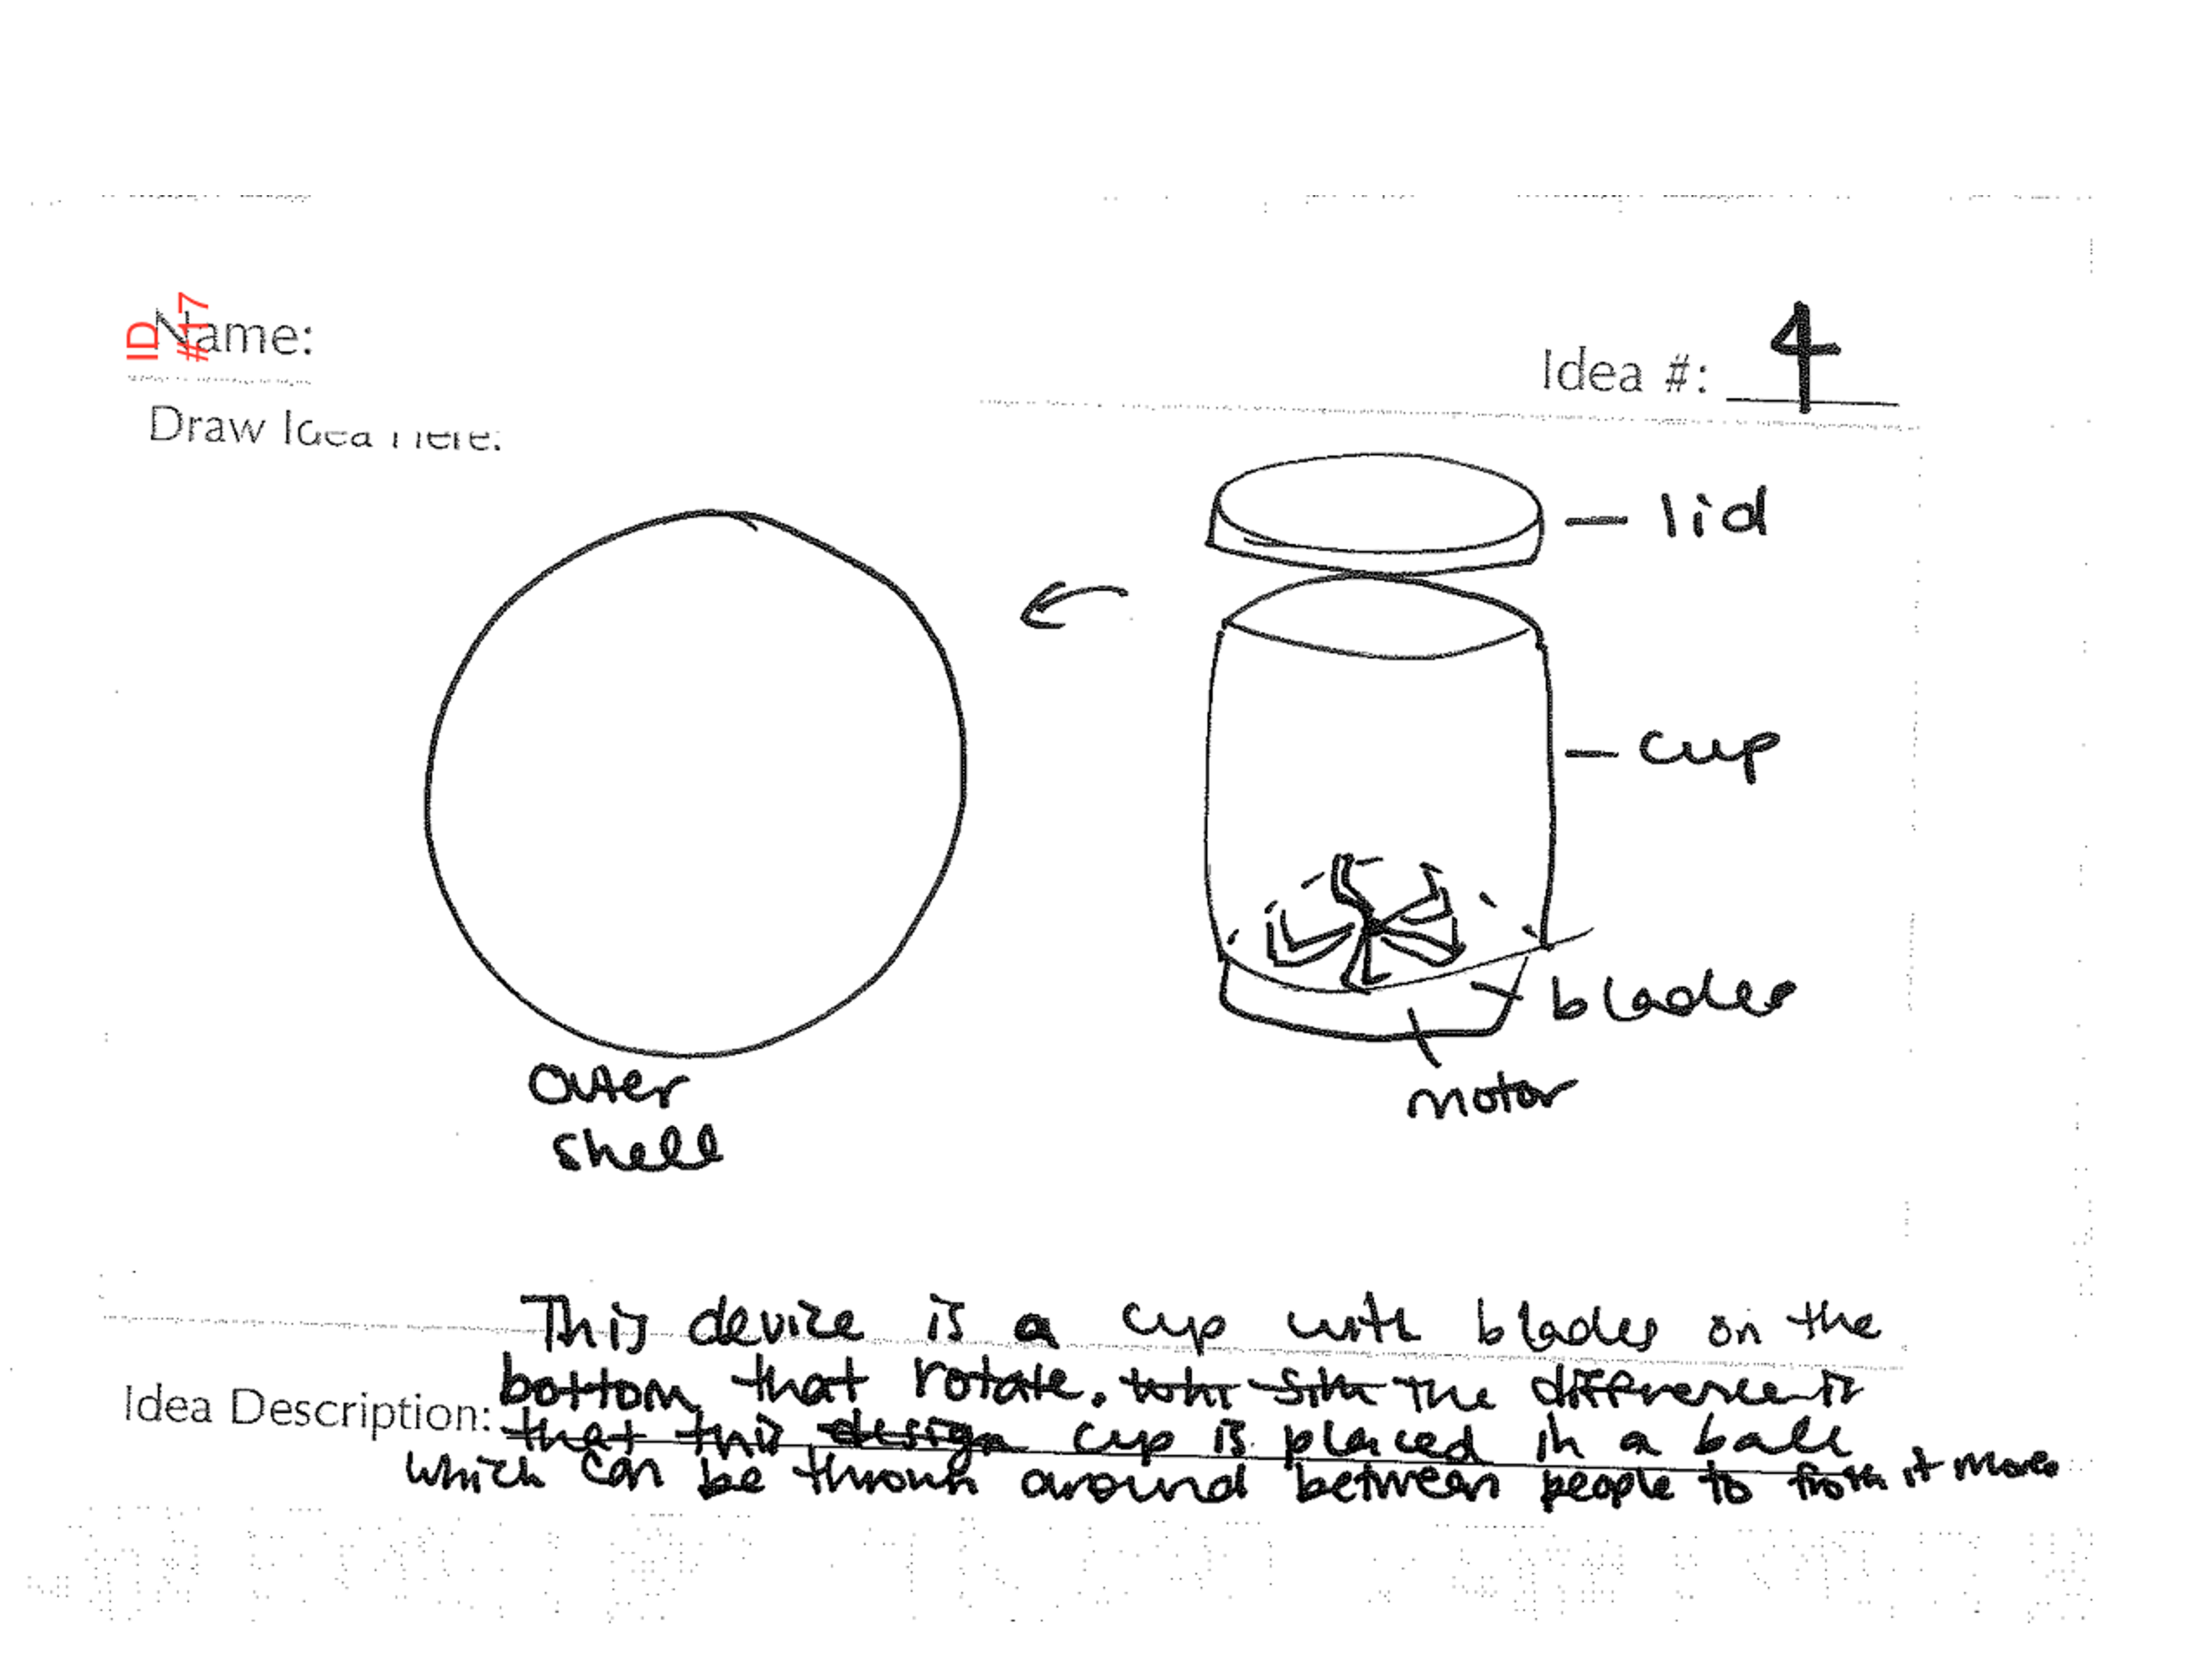 ID
#17
Name:
Idea #: 4
Draw Idea Here:
lid
cup
blades
motor
Outer
shell
This device is a cup with blades on the
bottom that rotate. The difference is
Idea Description:
that this design cup is placed in a ball
which can be thrown around between people to froth it more